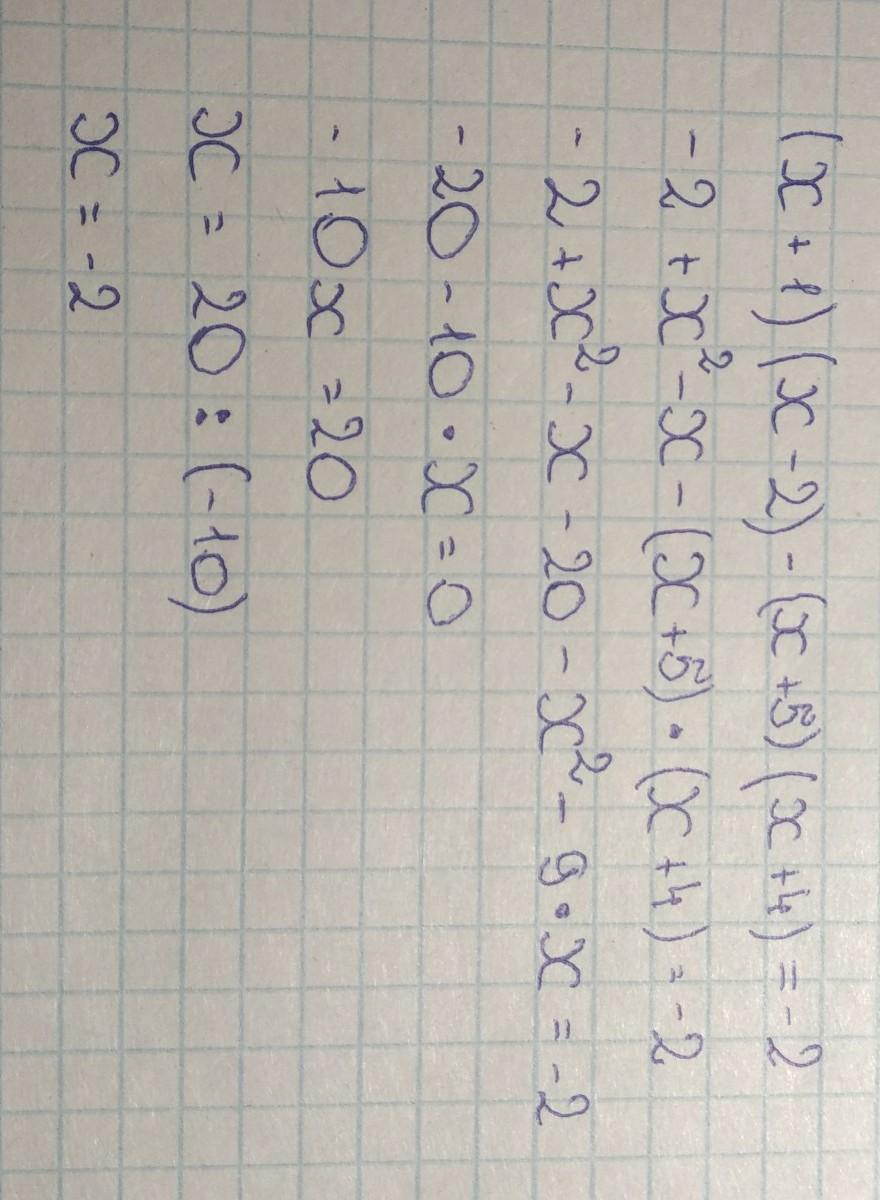 (x + 1) (x - 2) - (x + 5) (x + 4) = - 2
- 2 + x² - x - (x + 5) · (x + 4) = - 2
- 2 + x² - x - 20 - x² - 9 · x = - 2
- 20 - 10 · x = 0
- 10 x = 20
x = 20 : (- 10)
x = - 2